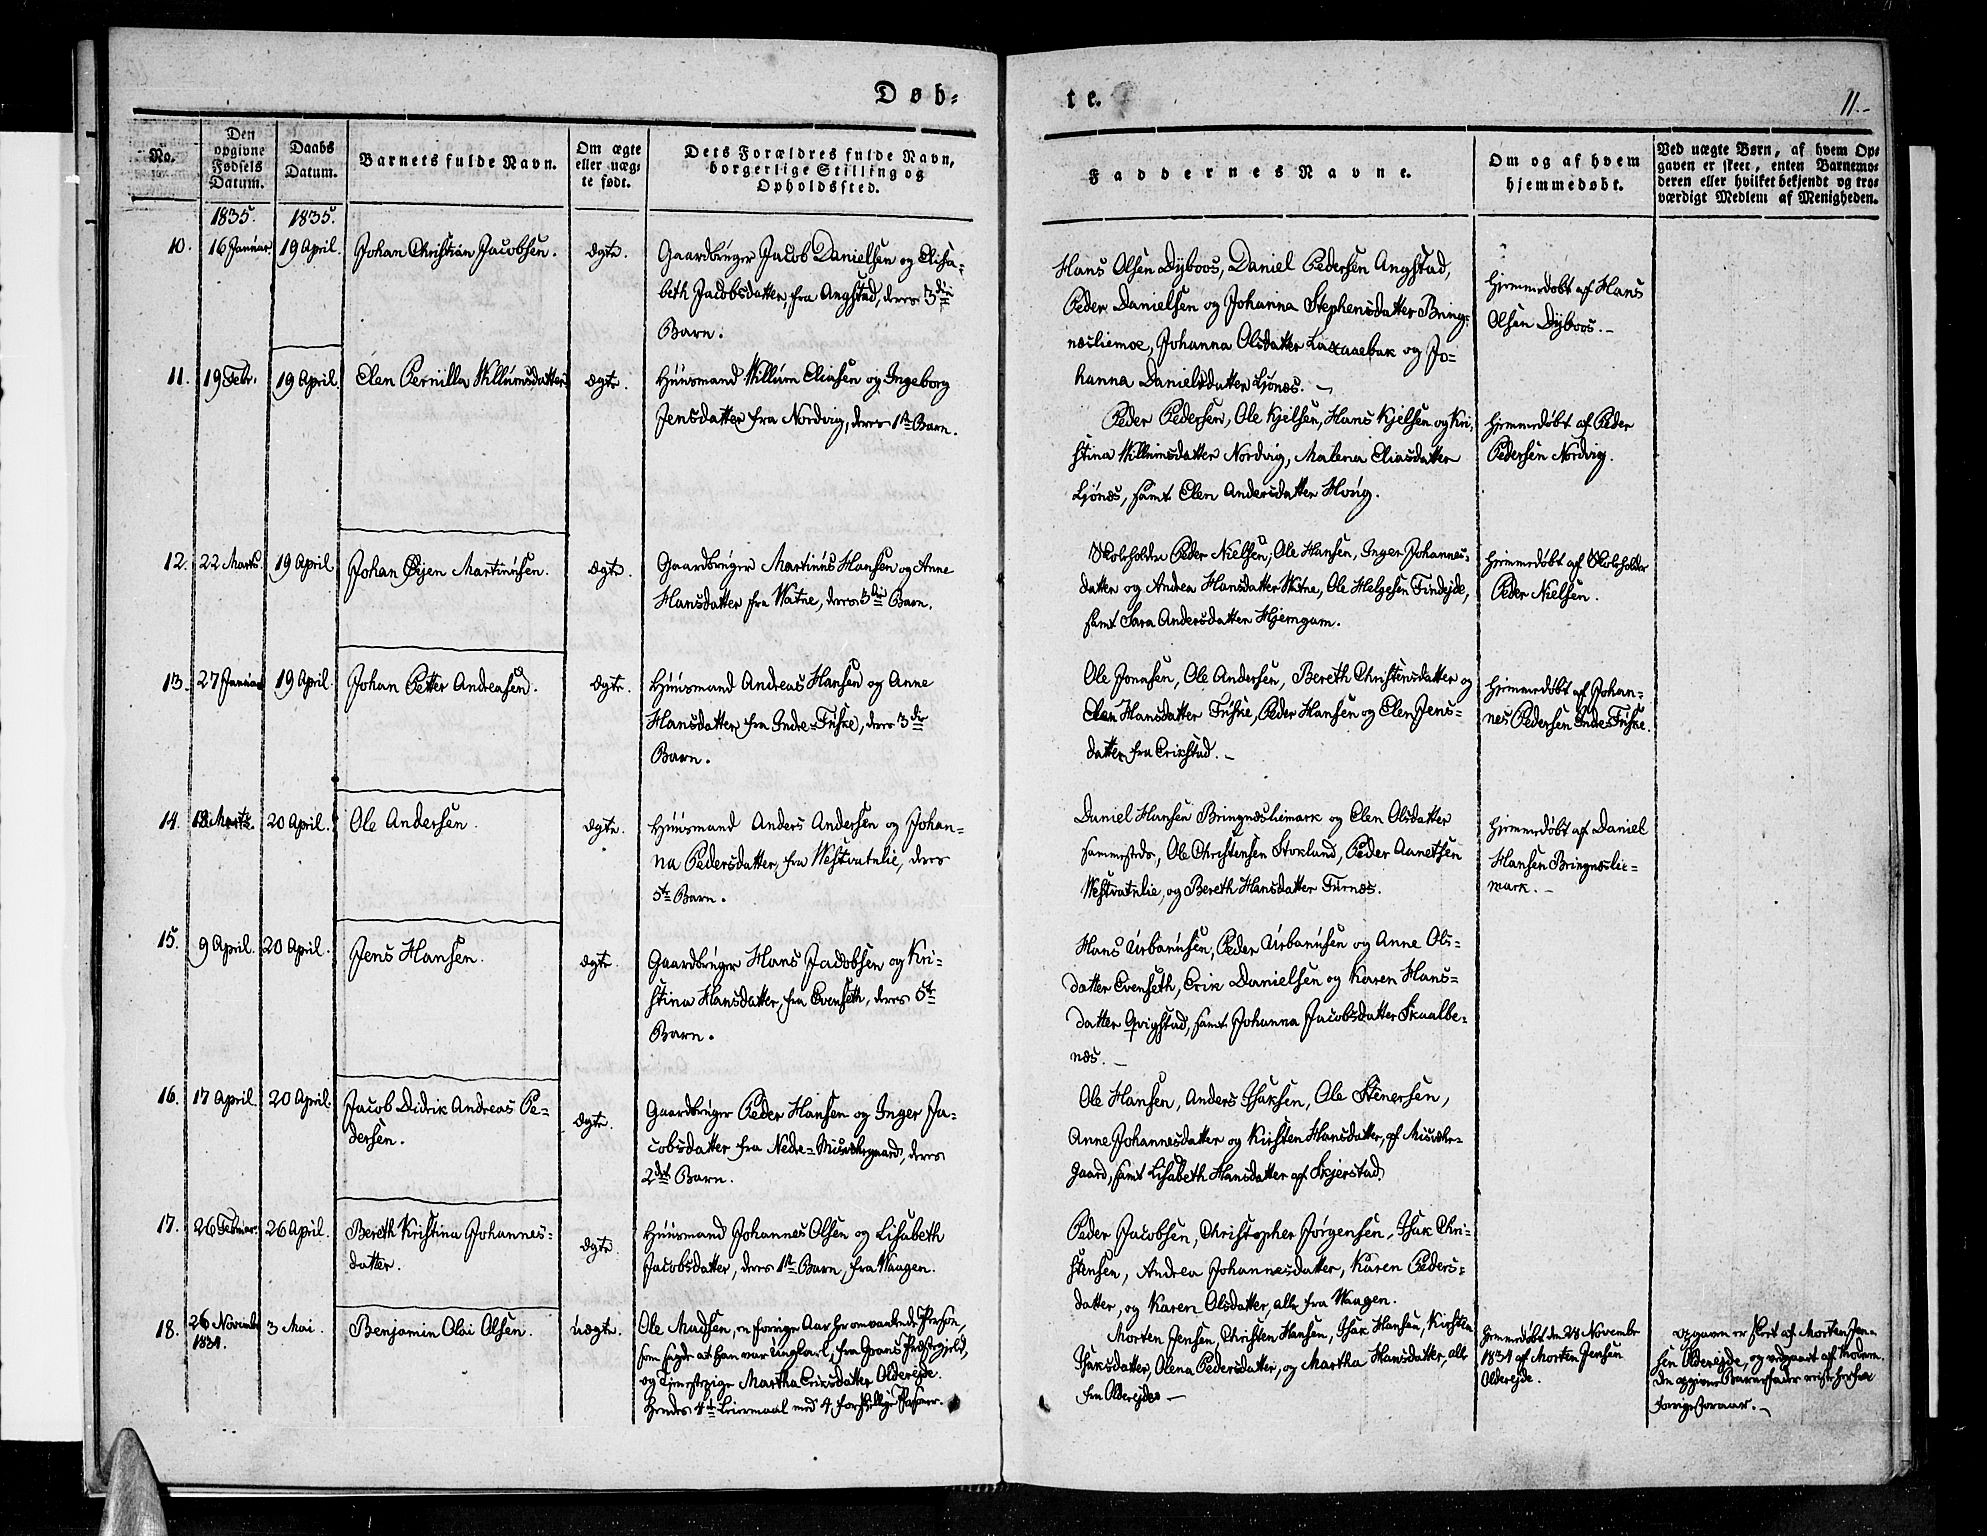 Døb=
te.
11.-
No.
Den
opgivne
Fødsels
Datum.
Daabs
Datum.
Barnets fulde Navn.
Om ægte
eller uæg=
te født.
Dets Forældres fulde Navn,
borgerlige Stilling og
Opholdssted.
Faddernes Navne.
Om og af hvem
hjemmedøbt.
Ved uægte Børn, af hvem Op=
gaven er skeet, enten Barnemo=
deren eller hvilket bekjendt og tro=
værdigt Medlem af Menigheden.
1835.
1835.
10.
16 Januar
19 April.
Johan Christian Jacobsen.
ægte.
Gaardbruger Jacob Danielsen og Elisa=
beth Jacobsdatter, fra Angstad, deres 3die
Barn.
Hans Olsen Dybvos, Daniel Pedersen Angstad,
Peder Danielsen og Johanna Stephensdatter Bring=
næsliemoe, Johanna Olsdatter Laxaaebak og Jo=
hanna Danielsdatter Ljönes. –
Hjemmedøbt af Hans
Olsen Dybvos. –
11.
19 Febr.
19 April.
Elen Pernilla Willumsdatter
ægte.
Huusmand Willum Eliasen og Ingeborg
Jensdatter fra Nordvig, deres 1ste Barn.
Peder Pedersen, Ole Kjelsen, Hans Kjelsen og Kri=
stina Willumsdatter Nordvig, Malena Eliasdatter
Ljönes, samt Elen Andersdatter Houg.
Hjemmedøbt af Peder
Pedersen Nordvig.
12.
22 Marts.
19 April
Johan Øijen Martinusen.
ægte.
Gaardbruger Martinus Hansen og Anne
Hansdatter fra Watne, deres 3die Barn.
Skoleholder Peder Nielsen, Ole Hansen, Inger Johannes=
datter og Andrea Hansdatter Watne, Ole Helgesen Findejde,
samt Sara Andersdatter Hjemgam.
Hjemmedøbt af Skoleholder
Peder Nielsen.
13.
27 Januar
19 April.
Johan Petter Andreasen.
ægte.
Huusmand Andreas Hansen og Anne
Hansdatter, fra Indre=Fuske, deres 3die
Barn.
Ole Jonasen, Ole Andersen, Bereth Christensdatter og
Elen Hansdatter Fuske, Peder Hansen og Elen Jens=
datter fra Erikstad. –
Hjemmedøbt af Johan=
nes Pedersen Indre Fuske.
14.
Marts.
20 April.
Ole Andersen.
ægte.
Huusmand Anders Andersen og Johan=
na Pedersdatter, fra Westvatnlie, deres
5te Barn.
Daniel Hansen Bringnesliemark og Elen Olsdatter
sammesteds, Ole Christensen Stokland, Peder Aanetsen
Westvatnlie, og Bereth Hansdatter Furnes.
Hjemmedøbt af Daniel
Hansen Bringneslie=
mark. –
15.
9 April.
20 April.
Jens Hansen.
ægte.
Gaardbruger Hans Jacobsen og Kri=
stina Hansdatter, fra Evenseth, deres 5te
Barn.
Hans Urbanusen, Peder Urbanusen og Anne Ols=
datter Evenseth, Erik Danielsen og Karen Hans=
datter Qvigstad, samt Johanna Jacobsdatter Skaalbe=
nes. –
16.
17 April.
20 April
Jacob Didrik Andreas Pe=
dersen.
ægte.
Gaardbruger Peder Hansen og Inger Ja=
cobsdatter fra Nedre=Misværgaard, deres
2det Barn.
Ole Hansen, Anders Isaksen, Ole Stenersen,
Anne Johannesdatter og Kirsten Hansdatter, af Misvær=
gaard, samt Lisabeth Hansdatter af Skjerstad.
17.
26 Februar.
26 April.
Bereth Kristina Johannes=
datter.
ægte.
Huusmand Johannes Olsen og Lisabeth
Jacobsdatter, deres 1te Barn, fra Waagen.
Peder Jacobsen, Christopher Jörgensen, Isak Chri=
stensen, Andrea Johannesdatter, Karen Peders=
datter, og Karen Olsdatter, alle fra Waagen.
18.
26 Novemb.
1834.
3 Mai.
Benjamin Olai Olsen.
uægte.
Ole Madsen, en forrige Aar her omvankende Person,
som sagde at han var ungkarl, fra Grans Præstegjeld,
og Tjenestepige Martha Eriksdatter Oldereide.
Hendes 4de Leiermaal med 4 forskjellige Personer.
Morten Jensen, Christen Hansen, Isak Hansen, Kirsten
Isaksdatter, Olena Pedersdatter, og Martha Hansdatter, alle
fra Olderejde –
Hjemmedøbt den 28 November
1834 af Morten Jensen
Olderejde.
Opgaven er skeet af Morten Jen=
sen Oldereide, og vedgaaet af Moderen.
Den opgivne Barnefader reiste herfra
forrige Foraar. –